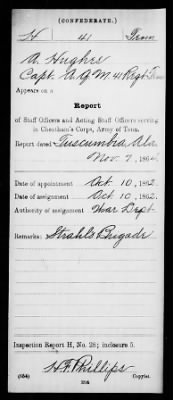 (CONFEDERATE.)
H 41 Tenn
A. Hughes
Capt. A Q M 41 Regt Tenn
Appears on a
Report
of Staff Officers and Acting Staff Officers serving
in Cheatham's Corps, Army of Tenn.
Report dated Tuscumbia, Ala
Nov. 7, 1864.
Date of appointment Oct. 10, 1862.
Date of assignment Oct 10, 1862.
Authority of assignment War Dept
Remarks: Strahl's Brigade
Inspection Report H, No. 28; inclosure 5.
H. F. Phillips
Copyist.